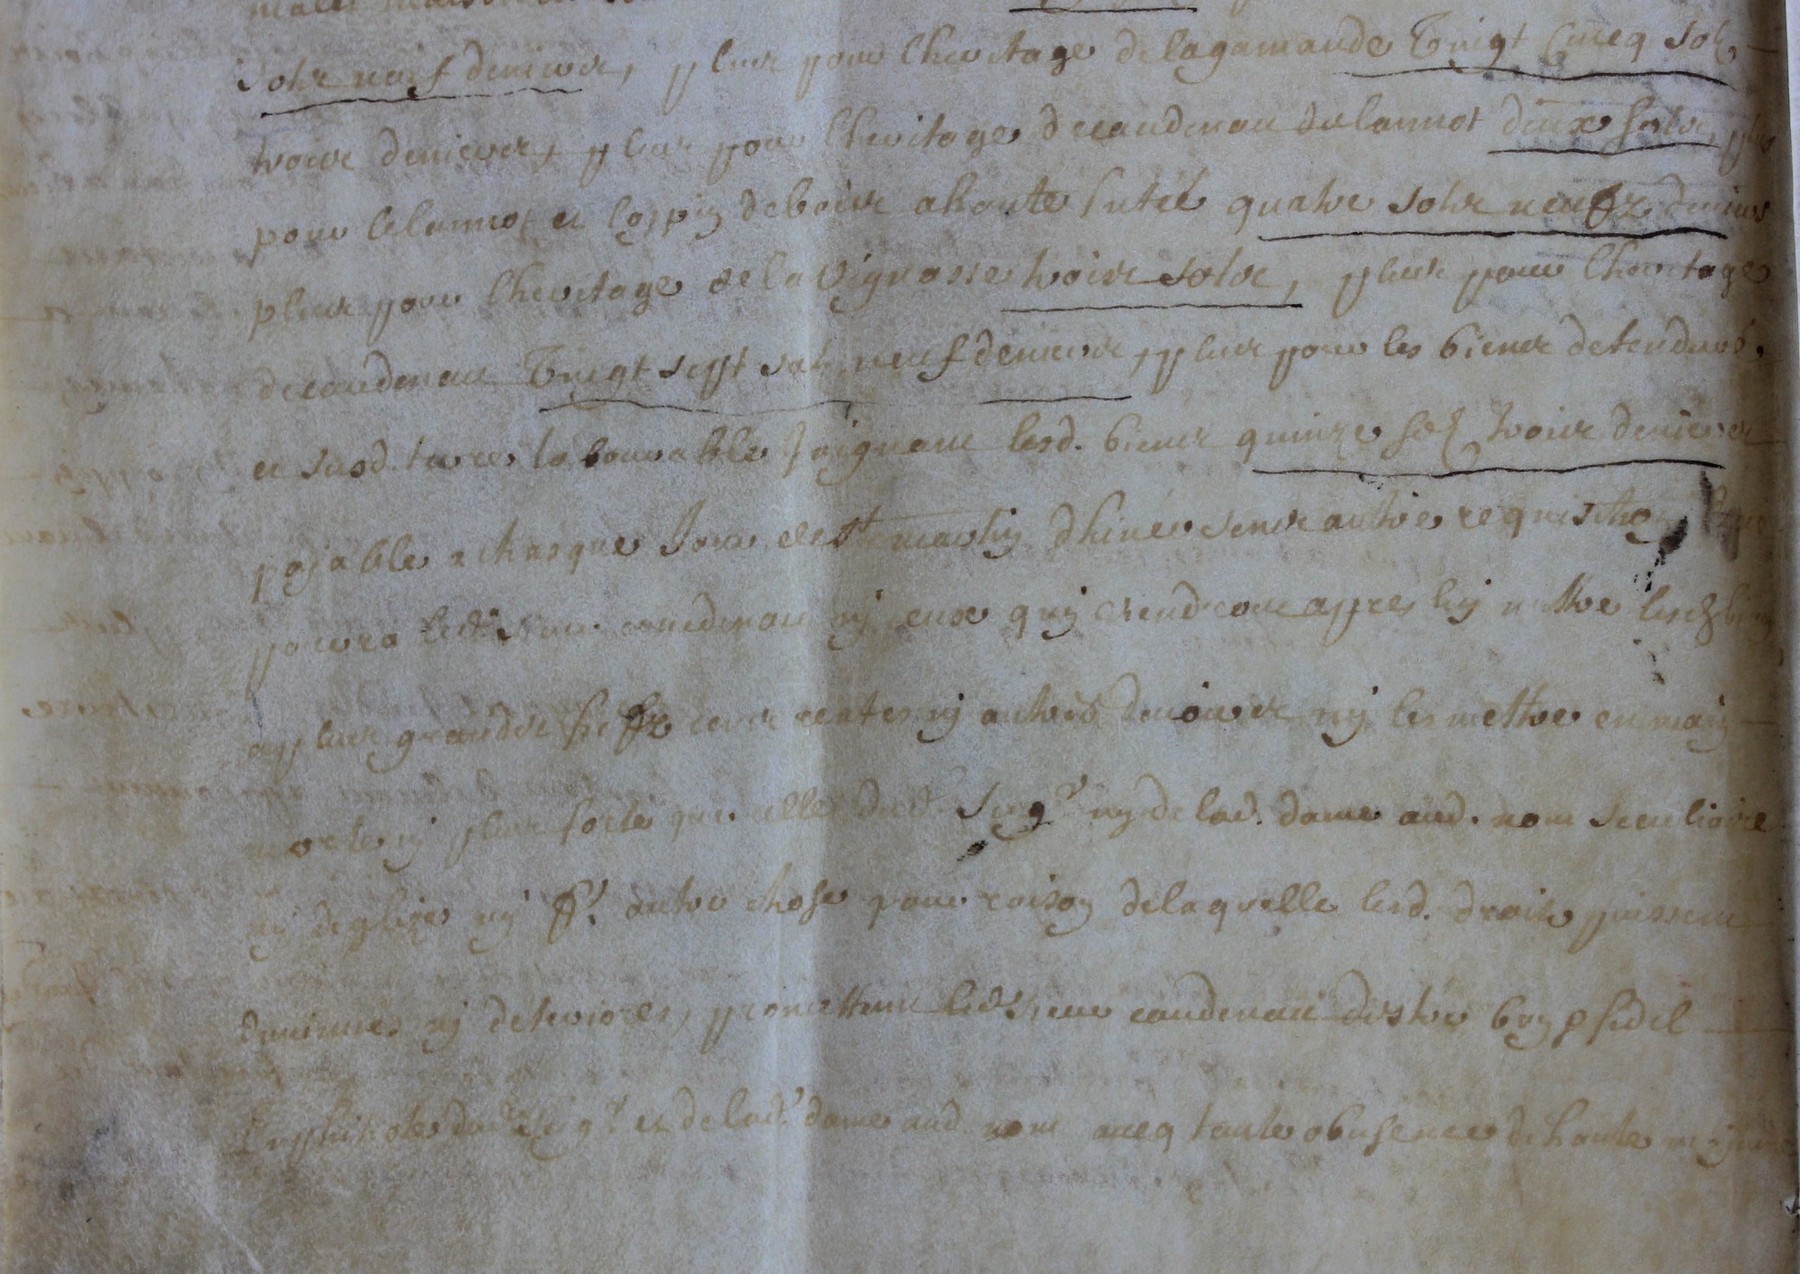 solz neuf deniers, plus pour lheritage de lagamaude Vingt Cincq solz
trois deniers, plus pour lheritage de caudenau du lannot deux solz, plus
pour le lannot et lospin de bois a haute futée quatre solz neufz deniers
plus pour lheritage de la vignasse trois solz, plus pour lheritage
de caudenau Vingt sept solz neuf deniers, plus pour les biens detendus
et susd. terres labourable joignant lesd. biens quinze solz trois deniers
payable a chasque Jour de st martin dhiver sans autre requisition
pourra led. sieur caudenau ny ceux quy viendront appres luy mettre lesd. biens
a plus grands fiefz cens rentes ny autres devoirs ny les mettre en main
morte ny plus forte que celle dud. seigr ny de lad. dame aud. nom seculiaire
ny deglise ny autre chose pour raison de laquelle lesd. droits puissent
diminuer ny deteriorer, promettant led. sieur caudenau destre bon & fidel
Emphiteote dud. seigr et de lad. dame aud. nom avecq toute obeissence de haute moyene